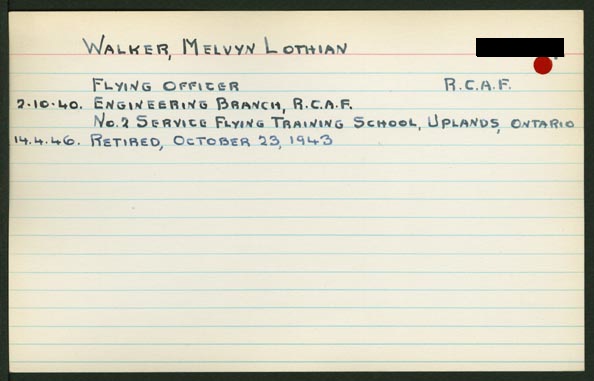 WALKER, MELVYN LOTHIAN
FLYING OFFICER R.C.A.F.
2.10.40. ENGINEERING BRANCH, R.C.A.F.
No.2 SERVICE FLYING TRAINING SCHOOL, UPLANDS, ONTARIO
14.4.46. RETIRED, OCTOBER 23, 1943